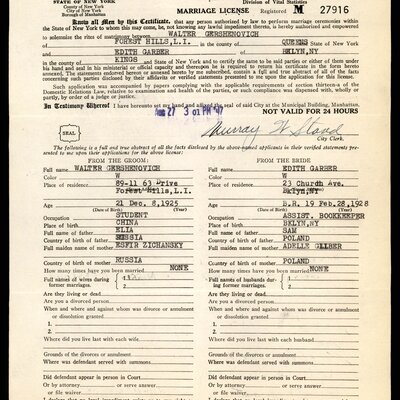 STATE OF NEW YORK
County of New York
City of New York
Borough of Manhattan
MARRIAGE LICENSE
Division of Vital Statistics
Registered M 27916
Know all Men by this Certificate, that any person authorized by law to perform marriage ceremonies within
the State of New York to whom this may come, he, not knowing any lawful impediment thereto, is hereby authorized and empowered
to solemnize the rites of matrimony between WALTER GERSHENOVICH
of FOREST HILLS, L.I. in the county of QUEENS State of New York
and EDITH GARBER of BKLYN, NY
in the county of KINGS and State of New York and to certify the same to be said parties or either of them under
his hand and seal in his ministerial or official capacity and thereupon he is required to return his certificate in the form hereto
annexed. The statements endorsed hereon or annexed hereto by me subscribed, contain a full and true abstract of all the facts
concerning such parties disclosed by their affidavits or verified statements presented to me upon the application for this license.
Such application was accompanied by papers complying with the applicable requirements of section thirteen-a of the
Domestic Relations Law, relative to examination and health of the parties, or such compliance was dispensed with, wholly or
partly, by order of a judge or justice.
In Testimony Whereof I have hereunto set my hand and affixed the seal of said City at the Municipal Building, Manhattan,
AUG 27 3 01 PM '47
NOT VALID FOR 24 HOURS
SEAL
Murray W Stand
City Clerk.
The following is a full and true abstract of the facts disclosed by the above-named applicants in their verified statements pre-
sented to me upon their applications for the above license:
FROM THE GROOM:
Full name WALTER GERSHENOVICH
Color W
Place of residence 89-11 63 Drive
Forest Hills, L.I.
Age 21 Dec. 8, 1925
(Date of Birth) (Year)
Occupation STUDENT
Place of birth CHINA
Full name of father ELIA
Country of birth of father RUSSIA
Full maiden name of mother ESFIR ZICHANSKY
Country of birth of mother RUSSIA
How many times have you been married NONE
Full names of wives during former marriages. 1
2
Are they living or dead?
Are you a divorced person?
When and where and against whom was divorce or annulment
or dissolution granted
1
2
Where did you live last with each wife.
Grounds of the divorces or annulment
Where was defendant served with summons
Did defendant appear in person in Court
Or by attorney or serve answer
or file waiver
FROM THE BRIDE
Full name EDITH GARBER
Color W
Place of residence 23 Church Ave.
Bklyn, NY
Age B.R. 19 Feb. 28, 1928
(Date of Birth) (Year)
Occupation ASSIST. BOOKKEEPER
Place of birth BKLYN, NY
Full name of father SAM
Country of birth of father POLAND
Full maiden name of mother ADELE
Country of birth of mother POLAND
How many times have you been married NONE
Full names of husbands during former marriages. 1
2
Are they living or dead?
Are you a divorced person?
When and where and against whom was divorce or annulment
or dissolution granted
1
2
Where did you live last with each husband.
Grounds of the divorces or annulment
Where was defendant served with summons
Did defendant appear in person in Court
Or by attorney or serve answer
or file waiver